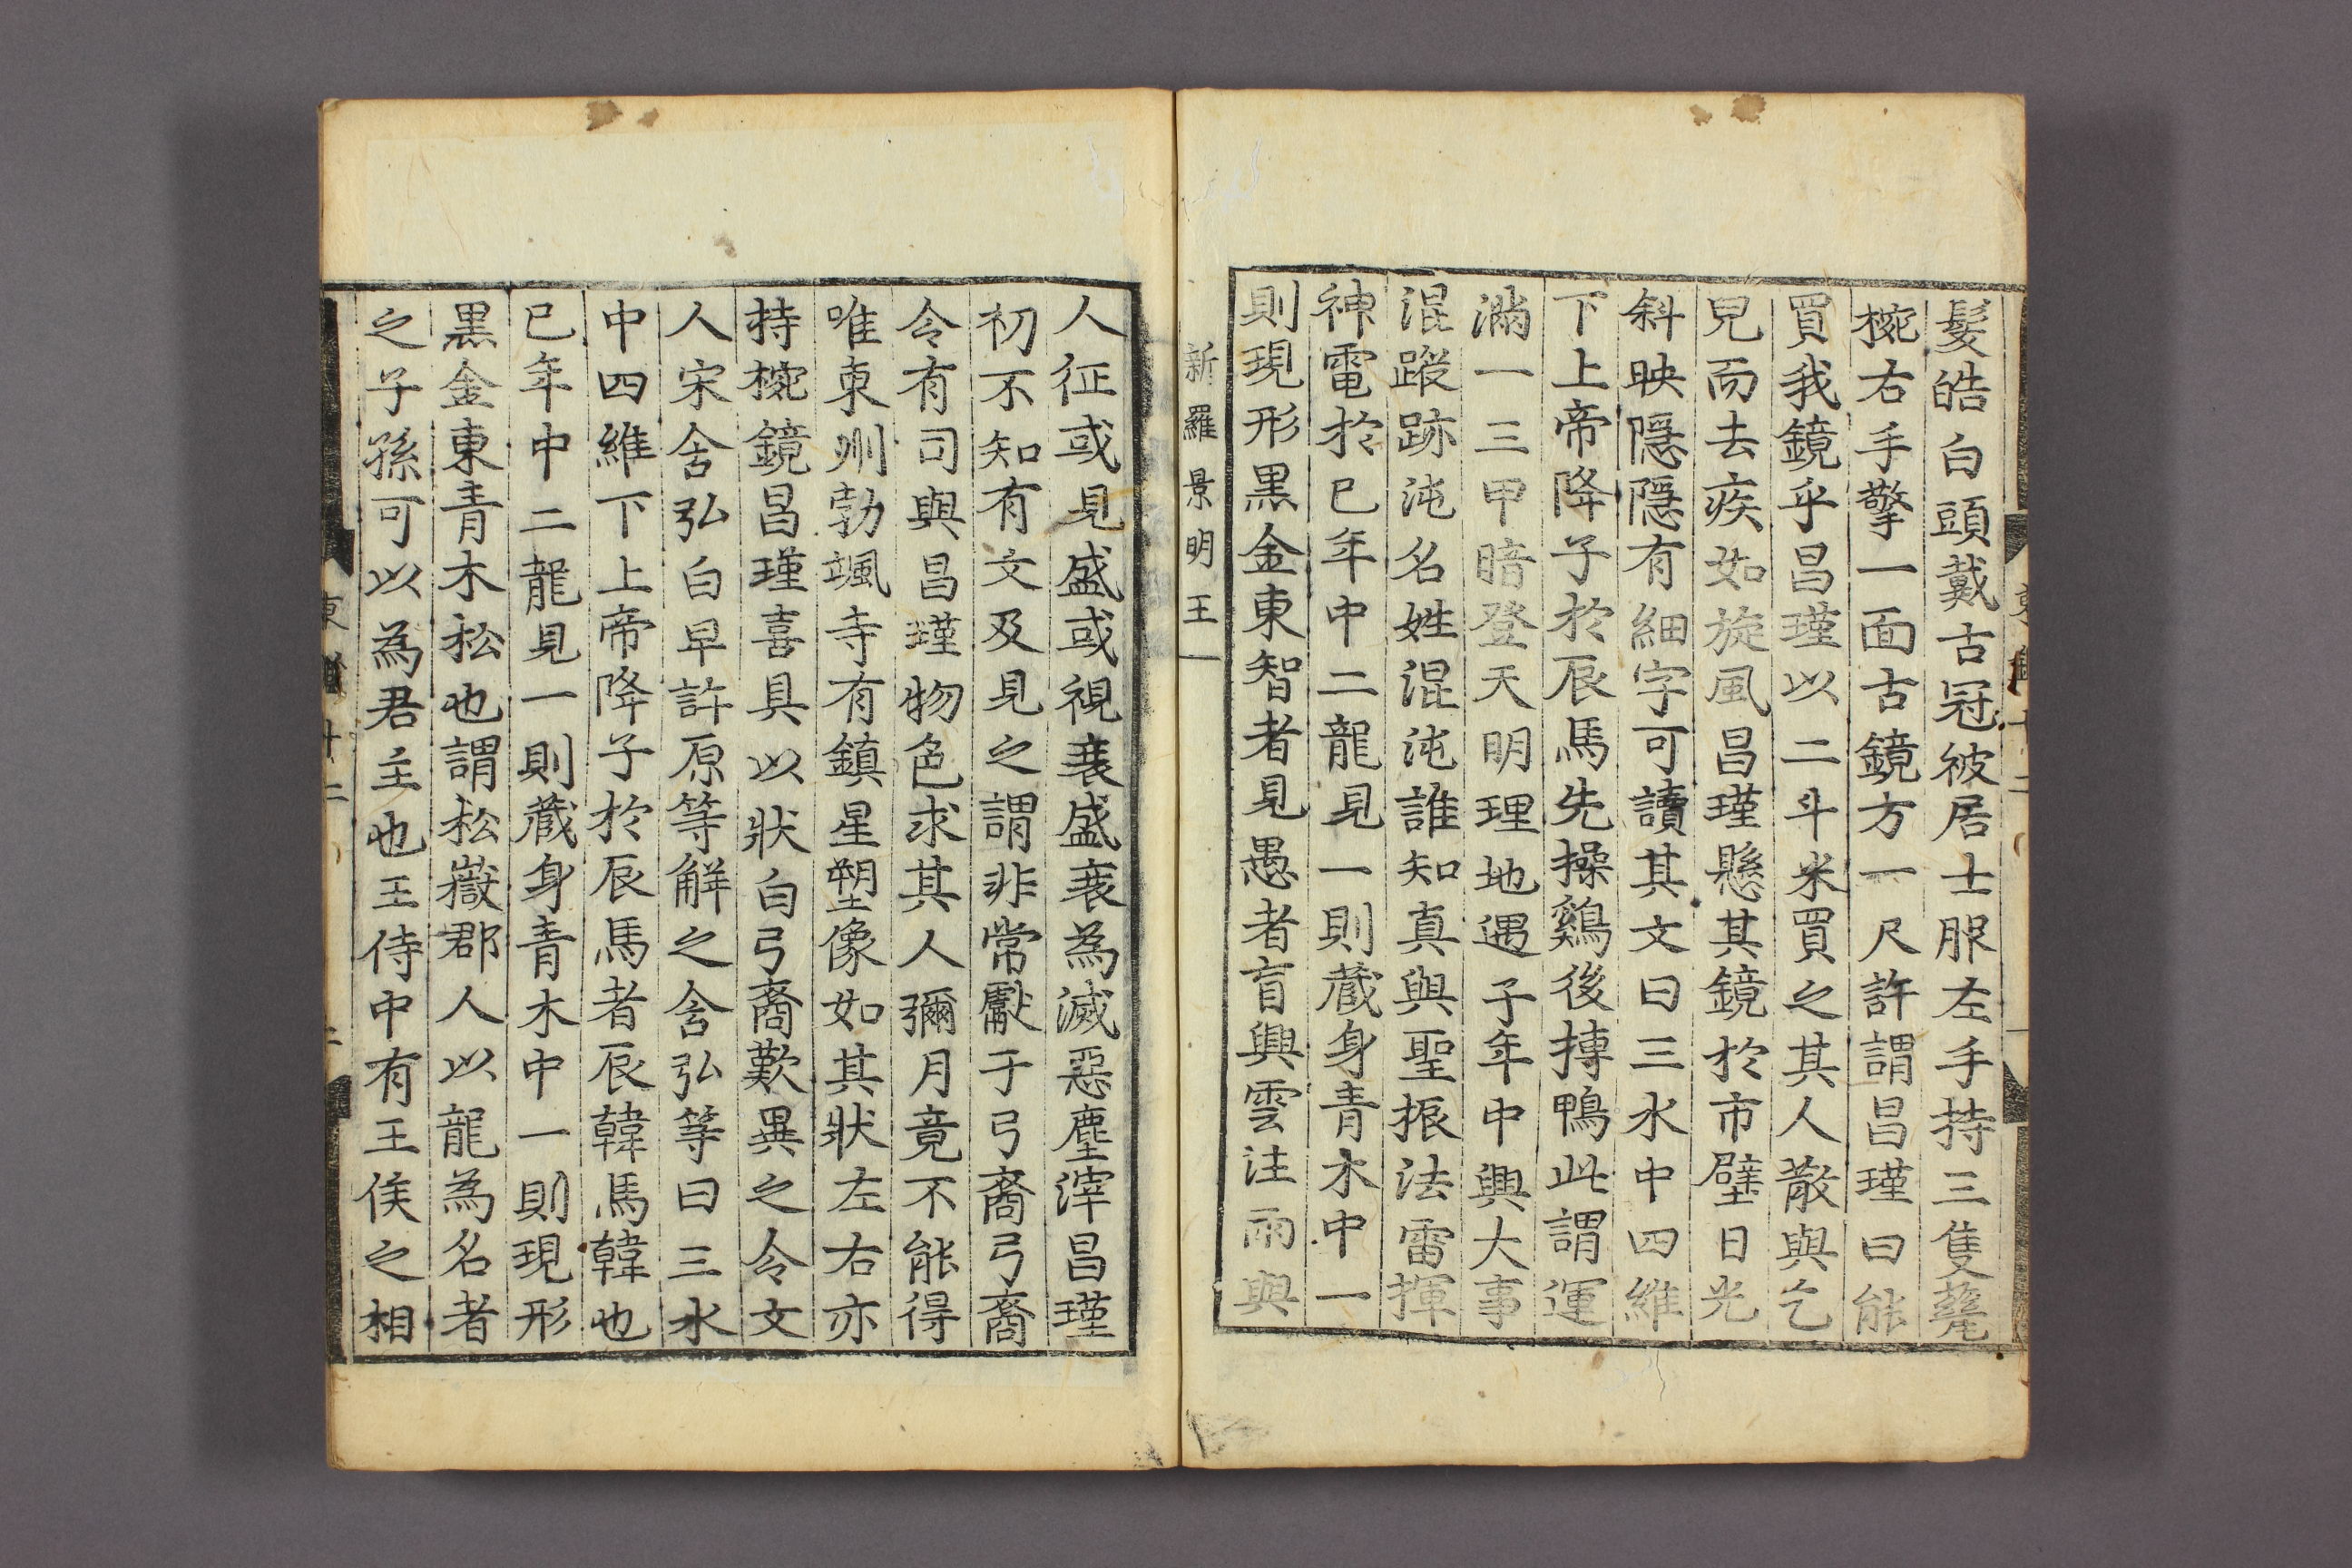 髮皓白頭戴古冠被居士服左手持三隻甆
椀右手擎一面古鏡方一尺許謂昌瑾曰能
買我鏡乎昌瑾以二斗米買之其人散與乞
兒而去疾如旋風昌瑾懸其鏡於市壁日光
斜映隱隱有細字可讀其文曰三水中四維
下上帝降子於辰馬先操鷄後搏鴨此謂運
滿一三甲暗登天明理地遇子年中興大事
混蹤跡沌名姓混沌誰知真與聖振法雷揮
神電於巳年中二龍見一則藏身青木中一
則現形黑金東智者見愚者盲興雲注雨與
新羅 景明王
人征或見盛或視衰盛衰為滅惡塵滓昌瑾
初不知有文及見之謂非常獻于弓裔弓裔
令有司與昌瑾物色求其人彌月竟不能得
唯東州勃颯寺有鎮星塑像如其狀左右亦
持椀鏡昌瑾喜具以狀白弓裔歎異之令文
人宋舍弘白卓許原等解之舍弘等曰三水
中四維下上帝降子於辰馬者辰韓馬韓也
巳年中二龍見一則藏身青木中一則現形
黑金東青木松也謂松嶽郡人以龍為名者
之子孫可以為君主也王侍中有王侯之相